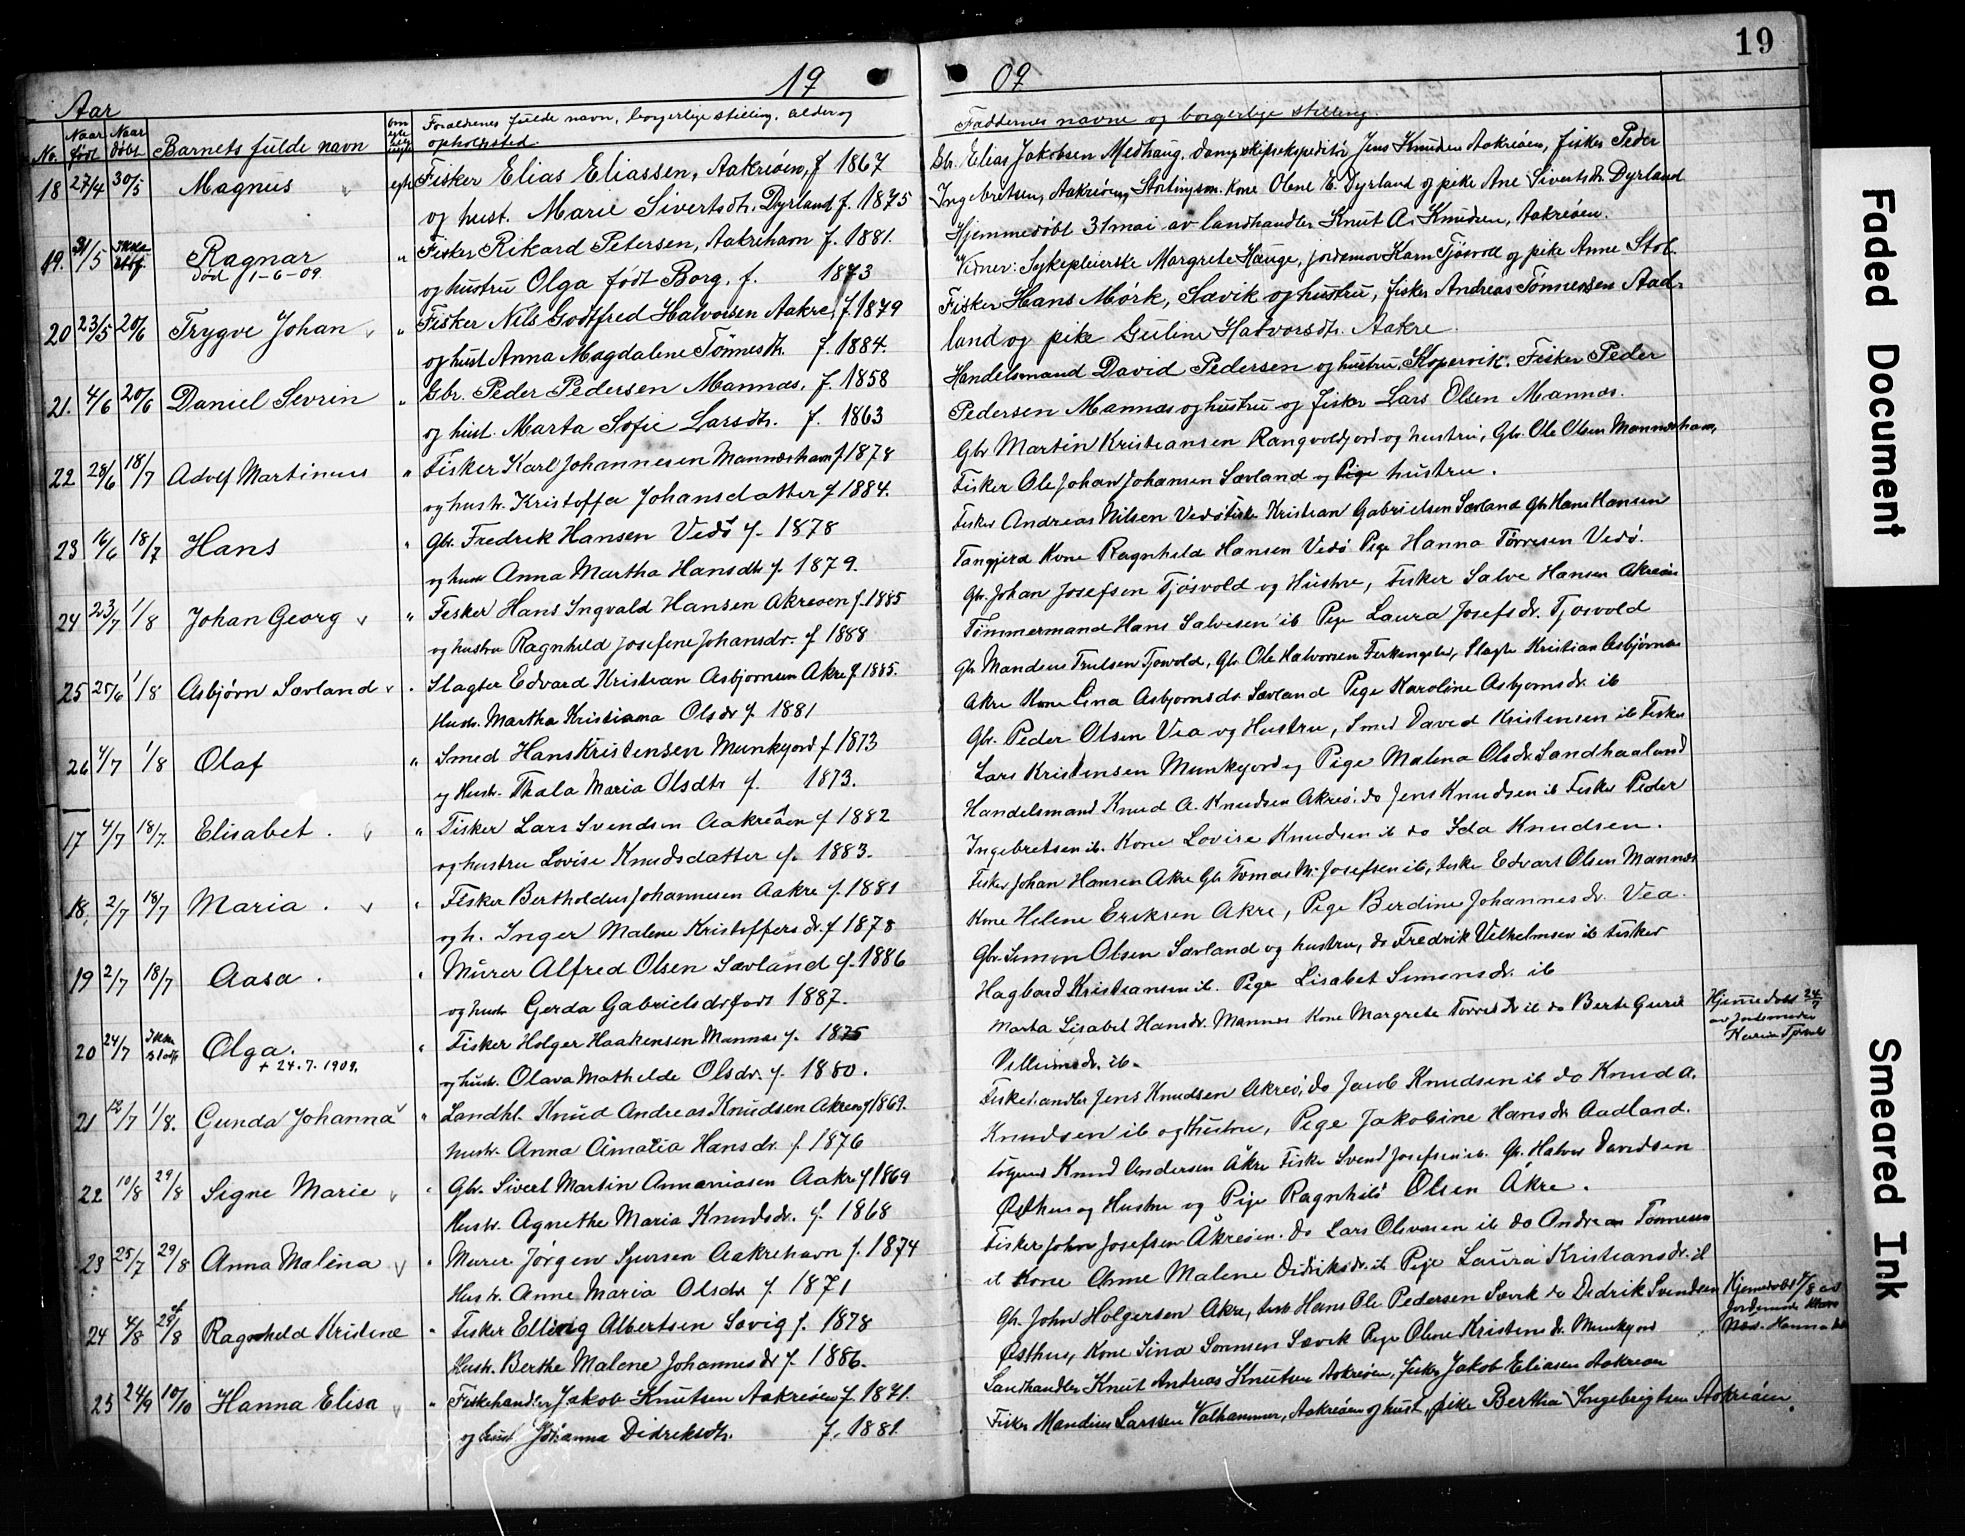 19
19 09
Aar
No. Naar født Naar døbt Barnets fulde navn Forældrenes fulde navn, borgerlige stilling, alder og opholdsted. Faddernes navne og borgerlige stilling.
18 27/4 30/5 Magnus egte Fisker Elias Eliassen, Aakreøen, f 1867 Gbr. Elias Jakobsen Medhaug, dampskipsekspeditør Jens Knudsen Aakreøen, fisker Peder
og hust. Marie Sivertsdtr. Dyrland f. 1875 Ingebretsen, Aakreøen, Stortingsm. kone Olene E. Dyrland og pike Ane Sivertsdtr. Dyrland
19. 31/5 Ragnar " Fisker Rikard Petersen, Aakrehavn f. 1881. Hjemmedøbt 31 mai av landhandler Knut A. Knudsen, Aakreøen.
død 1-6-09. og hustru Olga født Borg, f. 1873 Vidner: Sykepleierske Margrete Hauge, jordemor Karn Tjøsvoll og pike Anne Stol.
20 23/5 20/6 Trygve Johan " Fisker Nils Godtfred Halvorsen Aakre, f. 1879 Fisker Hans Mørk, Sævik og hustru, fisker Andreas Tønnesen Aad-
og hust Anna Magdalene Tønnesdtr. f. 1884. land og pike Guline Halvorsdtr. Aakre.
21. 4/6 20/6 Daniel Sevrin " Gbr. Peder Pedersen Mannæs, f. 1858 Handelsmand David Pedersen og hustru, Kopervik. Fisker Peder
og hust. Marta Sofie Larsdtr. f. 1863 Pedersen Mannæs og hustru og fisker Lars Olsen Mannæs.
22 28/6 18/7 Adolf Martinius " Fisker Karl Johannesen Mannæsham f 1878 Gbr Martin Kristiansen Rangvoldjord og hustru, Gbr. Ole Olsen Mannæsham,
og hustr. Kristoffa Johansdatter f 1884. Fisker Ole Johan Johansen Sævland og Pige hustru.
23 16/6 18/7 Hans " Gbr. Fredrik Hansen Vedø f. 1878 Fisker Andreas Nilsen Vedø Fisker Kristian Gabrielsen Sævland Gbr Hans Hansen
og hustr Anna Martha Hansdtr f. 1879. Tangjerd Kone Ragnhild Hansen Vedø Pige Hanna Tørresen Vedø.
24 23/7 1/8 Johan Georg " Fisker Hans Ingvald Hansen Akreøen f. 1885 Gbr. Johan Josefsen Tjøsvold og Hustru, Fisker Salve Hansen Akreøen
og hustru Ragnhild Josefine Johansdr. f 1888 Tømmermand Hans Salvesen ib Pige Laura Josefsdr. Tjøsvold
25 25/6 1/8 Asbjørn Sævland Slagter Edvard Kristian Asbjørnsen Akre f 1885. Gbr Mandius Trulsen Tjøsvold, Gbr Ole Halvorsen Ferkingstad, Slagter Kristian Asbjørnsen
Hustr. Martha Kristiana Olsdr f. 1881 Akre Kone Lina Asbjørnsdr Sævland Pige Karoline Asbjørnsdr. ib
26 4/7 1/8 Olaf " Smed Hans Kristensen Munkejord f 1873 Gbr. Peder Olsen Vea og Hustru, Smed David Kristensen ib Fisker
og Hustr. Thala Maria Olsdtr f. 1873. Lars Kristensen Munkejord og Pige Malena Olsdr. Sandhaaland
17 4/7 18/7. Elisabet. " Fisker Lars Svendsen Aakreøen f 1882 Handelsmand Knud A. Knudsen Akreø, do Jens Knudsen ib Fisker Peder
og hustru Lovise Knudsdatter f. 1883. Ingebretsen ib. Kone Lovise Knudsen ib do Ida Knudsen.
18. 2/7 18/7 Maria. Fisker Bertholdus Johannesen Aakre f. 1881 Fisker Johan Hansen Akre Gbr Tomas M. Josefsen ib, fisker Edvart Olsen Mannæs
og h. Inger Malene Kristoffersdr. f 1878 Kone Helene Eriksen Akre, Pige Berdine Johannesdr. Vea.
19 2/7 18/7 Aasa. Murer Alfred Olsen Sævland f. 1886 Gbr Simon Olsen Sævland og hustru, do Fredrik Vilhelmsen ib fisker
og hustr Gerda Gabrielsdr født 1887. Hagbard Kristiansen ib. Pige Lisabet Simonsdr. ib
20 24/7 Olga. Fisker Holger Haakensen Mannæs f. 1875 Marta Lisabet Hansdr. Mannæs Kone Margrete Torresdr ib do Berte Gurie Hjemmedøbt 24/7 av Jordemoder
+ 24.7.1909. og hustr. Olava Mathilde Olsdr. f. 1880. Villumsdr. ib.
21 12/7 1/8. Gunda Johanna " Landhl. Knud Andreas Knudsen Akreøen f 1869. Fiskehandler Jens Knudsen Akreø, do Jacob Knudsen ib do Knud A.
hustr. Anna Amalia Hansdr. f. 1876 Knudsen ib og Hustru, Pige Jakobine Hansdr Aadland.
22 10/8 29/8 Signe Marie Gbr. Sivert Martin Annaniasen Aakre f 1869 Knud Andersen Åkre Fisker Svend Josefsen ib. Gbr. Halvor Davidsen
Hustr. Agnethe Maria Knudsdr. f. 1868 Østhus og Hustru og Pige Ragnhild Olsen Åkre.
23 25/7 29/8 Anna Malina Murer Jørgen Sjursen Aakrehavn f. 1874 Fisker John Josefsen Åkreøen. do Lars Olvasen ib do Andreas Tønnesen
Hustr. Anne Maria Olsdtr f 1871 ib Kone Anne Malene Didriksdr. ib Pige Laura Kristiansdr. ib
24 4/8 29/8 Ragnhild Kristine Fisker Elling Albertsen Sævig f. 1878 Gbr. John Holgersen Akre, fisker Hans Ole Pedersen Sævik do Didrik Svendsen Hjemmedøbt 4/8 av Jordemoder
Hustr. Berthe Malene Johannesdr f. 1886. Østhus, Kone Sina Sørensen Sævik Pige Oline Kristensdr. Munkejord
25 24/9 10/10 Hanna Elisa " Fiskehandler Jakob Knutsen Aakreøen f. 1871. Landhandler Knut Andreas Knutsen Aakreøen, fisker Jakob Eliasen Aakreøen
og hust Johanna Didriksdtr. f. 1881. Fisker Mandius Larssen Valhammer, Aakreøen og hust, pike Bertha Ingebrigtsen Aakreøen.
Faded Document
Smeared Ink